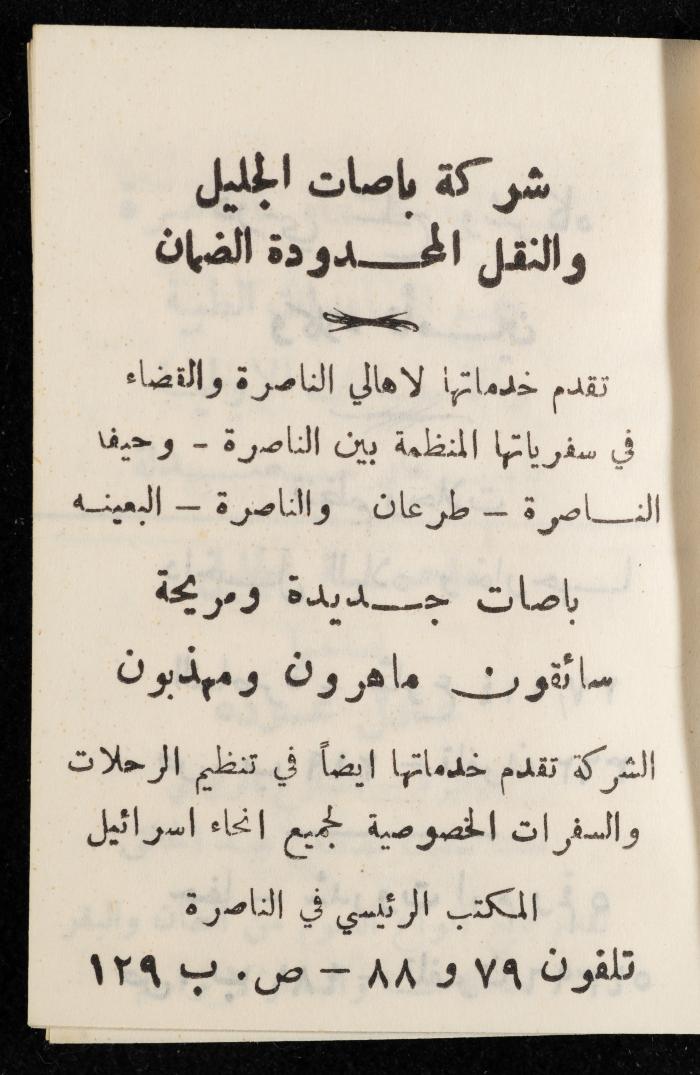 شركة باصات الجليل
والنقل المحدودة الضمان
تقدم خدماتها لاهالي الناصرة والقضاء
في سفرياتها المنظمة بين الناصرة - وحيفا
الناصرة - طرعان والناصرة - البعينه
باصات جديدة ومريحة
سائقون ماهرون ومهذبون
الشركة تقدم خدماتها ايضاً في تنظيم الرحلات
والسفرات الخصوصية لجميع انحاء اسرائيل
المكتب الرئيسي في الناصرة
تلفون ٧٩ و ٨٨ - ص. ب ١٢٩